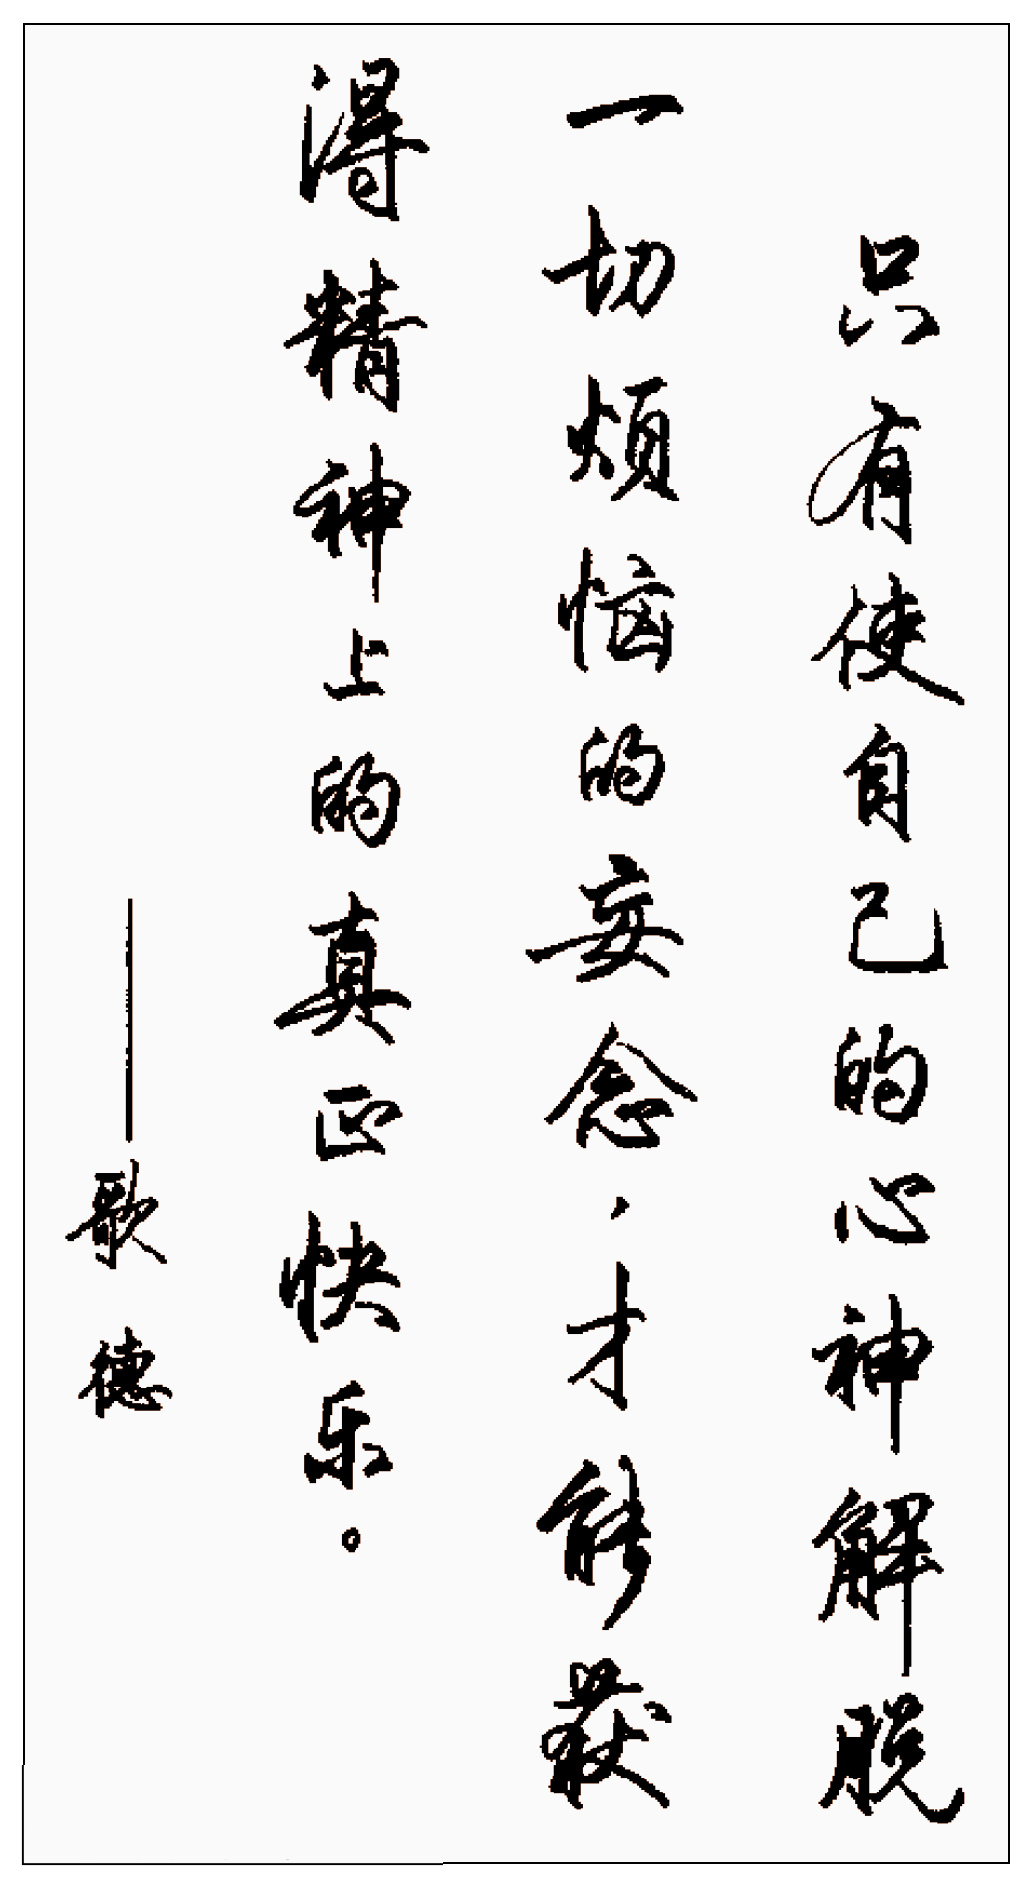 只有使自己的心神解脱
一切烦恼的妄念，才能获
得精神上的真正快乐。
——歌德